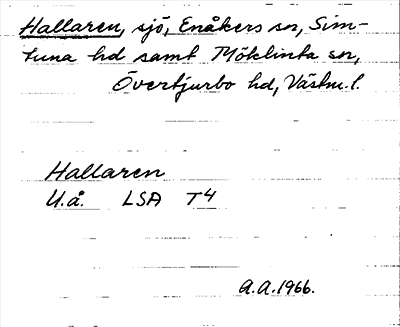 Hallaren, sjö, Enåkers sn, Sim-
tuna hd samt Möklinta sn,
Övertjurbo hd, Västm. l.
Hallaren
U.å. LSA T4
A.A. 1966.